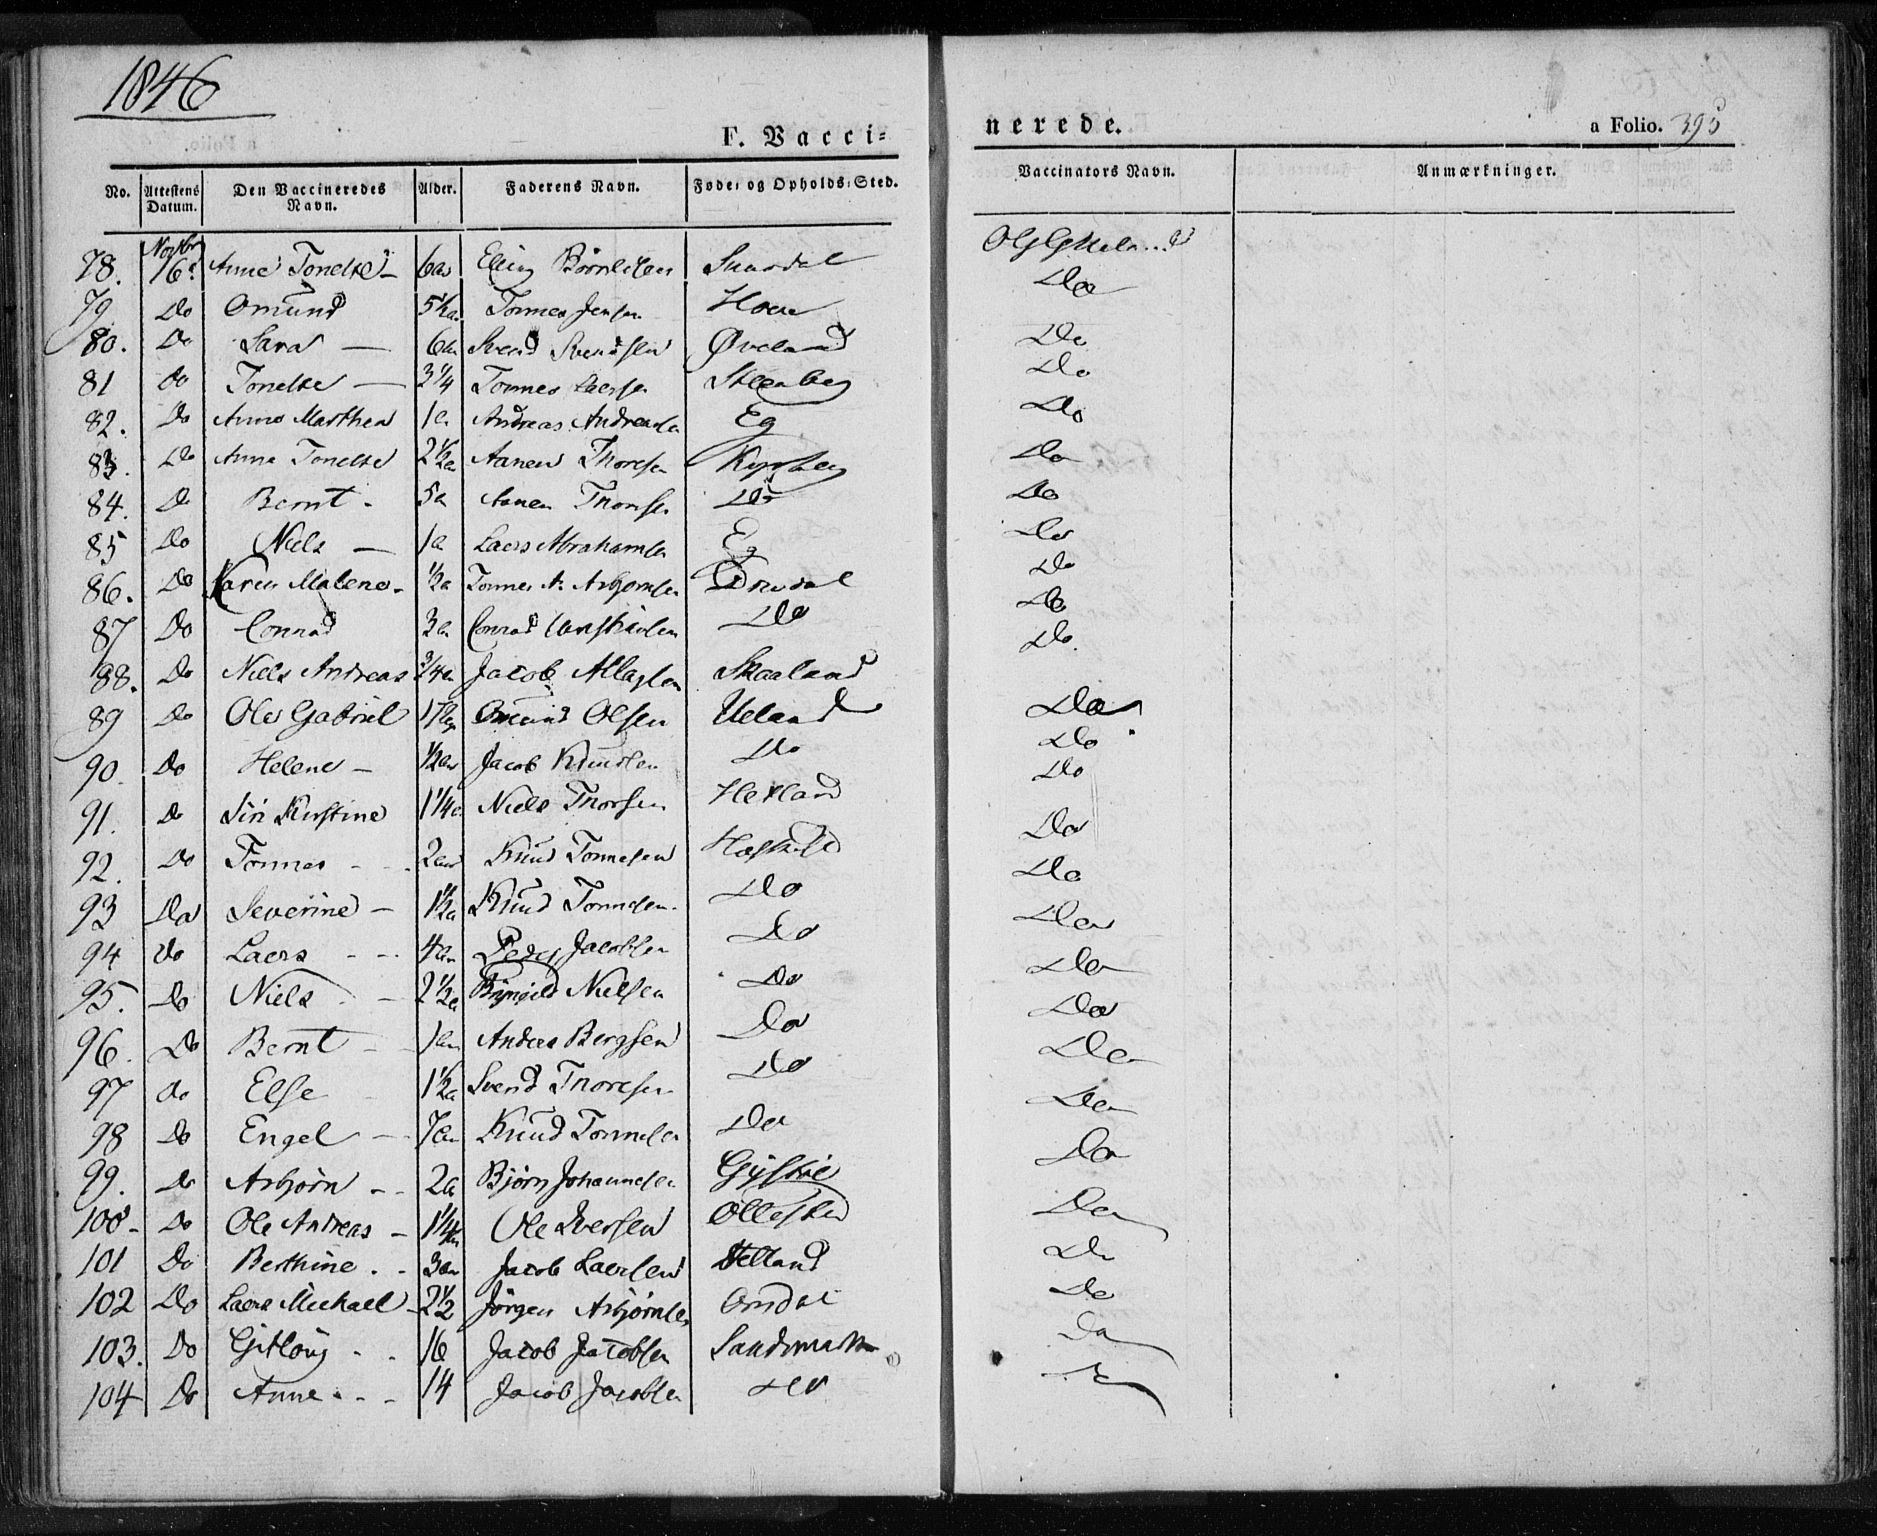 1846
F. Vacci=
nerede.
a Folio. 395
No. Attestens Datum. Den Vaccineredes Navn. Alder. Faderens Navn. Føde= og Opholds=Sted. Vaccinators Navn. Anmærkninger.
78. Novbr 16. Anne Tonette 6a
79 Do Omund 5½a Tonnes Jensen Do
80. Do Sara — 6a Svend Svendsen Øveland Do
81 do Tonette — 3¼ Tonnes Laersen Steenberg Do
82. Do Anne Marthea 1a Andreas Andreasen Eg Do
83. Do Anne Tonette 2½a Aanen Thorsen Do
84. Do Bernt - 5a Aanen Thorsen Do Do
85 Do Niels — 1a Laers Abrahamsen Eg Do
86. Do Karen Malene - ½a Tonnes A. Asbjornsen Drivdal Do
87 Do Conrad 3a Conrad Do Do
88. Do Niels Andreas ¾a Jacob Atlagsen Skaaland Do
89 Do Ole Gabriel Omund Olsen Ueland Do
90. Do Helene — ½a Jacob Knudsen Do Do
91. Do Siri Kirstine 1¼a Niels Thorsen Hetland Do
92. Do Tonnes - - 2a Knud Tonnesen Do
93 Do Severine — 1½a Knud Tonnesen Do Do
94 do Laers - - 4a Peder Jacobsen Do Do
95. Do Niels - 2½a Nielsen Do Do
96. Do Bernt - 1a Andreas Bergsen Do Do
97 do Else 1½a Svend Thorsen Do Do
98 Do Engel — 7a Knud Tonnesen Do Do
99. Do Asbjørn - - 2a Bjørn Johannesen Do
100 - Do Ole Andreas - 1¼a Ole Iversen Ollestad Do
101 Do Berthine . . 3a Jacob Laersen Do
102 Do Laers Michael - 2½ Jørgen Asbjørnsen Omdal Do
103. Do Gitlaug - . 16 Jacob Jacobsen Sandsmark Do
104 Do Anne . - - 14 Jacob Jacobsen Do